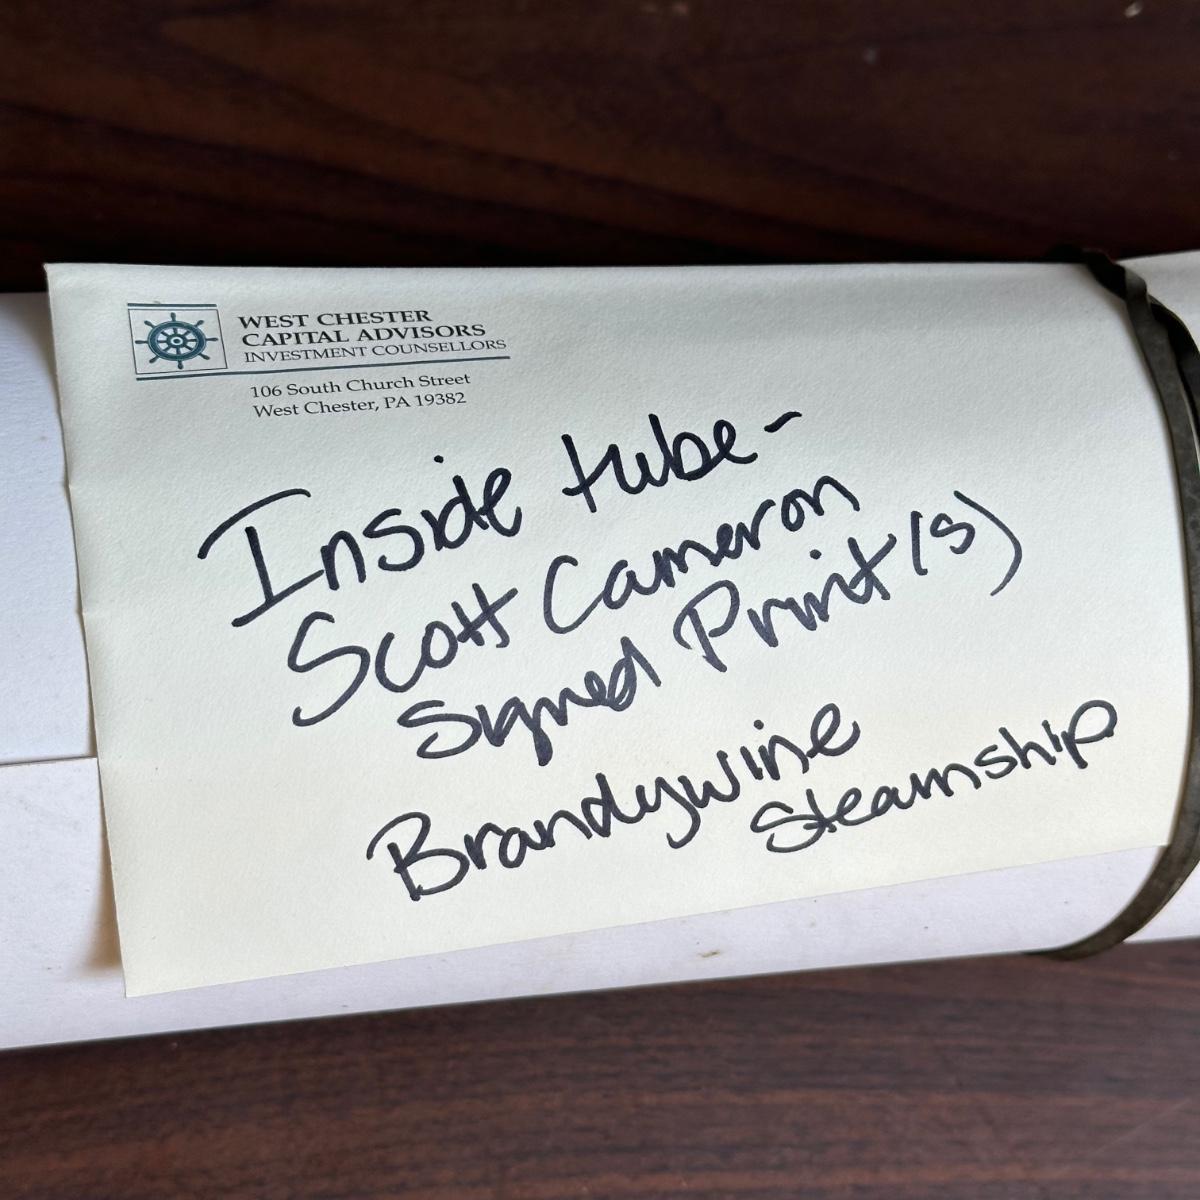 WEST CHESTER
CAPITAL ADVISORS
INVESTMENT COUNSELLORS
106 South Church Street
West Chester, PA 19382
Inside tube -
Scott Cameron
Signed Print(s)
Brandywine
Steamship